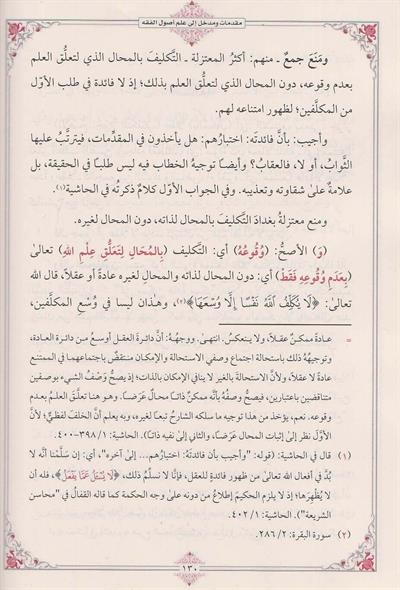 مقدمات ومدخل إلى علم أصول الفقه
ومَنَعَ جمعٌ ـ منهم: أكثرُ المعتزلة ـ التَّكليفَ بالمحال الذي لتعلُّق العلم
بعدم وقوعه، دون المحال الذي لتعلُّق العلم بذلك؛ إذ لا فائدة في طلب الأوّل
من المكلَّفين؛ لظهور امتناعه لهم.
وأجيب: بأنَّ فائدتَه: اختبارُهم: هل يأخذون في المقدِّمات، فيترتَّبُ عليها
الثَّوابُ، أو لا، فالعقابُ؟ وأيضًا توجيهُ الخطاب فيه ليس طلبًا في الحقيقة، بل
علامةٌ علىٰ شقاوته وتعذيبه. وفي الجواب الأوّل كلامٌ ذكرتُه في الحاشية(١).
ومنع معتزلةُ بغدادَ التَّكليفَ بالمحال لذاته، دون المحال لغيره.
(وَ) الأصحُّ: (وُقُوعُهُ) أي: التَّكليف (بِالمُحَالِ لِتَعَلُّقِ عِلْمِ اللهِ) تعالىٰ
(بِعَدَمِ وُقُوعِهِ فَقَطْ) أي: دون المحال لذاته والمحالِ لغيره عادةً أو عقلًا، قال الله
تعالىٰ: ﴿لَا يُكَلِّفُ ٱللَّهُ نَفْسًا إِلَّا وُسْعَهَا﴾(٢)، وهٰذان ليسا في وُسْعِ المكلَّفين،
= عادةً ممكنٌ عقلًا، ولا ينعكسُ. انتهىٰ. ووجهُهُ: أنَّ دائرةَ العقل أوسعُ مـن دائـرة العـادة،
وتوجيهُهُ ذلك باستحالة اجتماع وصفي الاستحالة والإمكان منتقضٌ باجتماعهما في الممتنع
عادةً لا عقلًا، ولأنَّ الاستحالةَ بالغير لا ينافي الإمكان بالذات؛ إذ يصحُّ وَصْفُ الشيء بوصفين
متناقضين باعتبارين، فيصحُّ وصفُهُ بأنَّه ممكنٌ ذاتًـا محالٌ عَرَضًـا. وهـو هنـا تعلُّقُ العلـم بعـدم
وقوعه. نعم، يؤخذ من هذا توجيه ما سلكه الشارحُ تبعًا لغيره، وبه يعلم أنَّ الخلفَ لفظيٌّ؛ لأنَّ
الأوّلَ نظر إلى إثبات المحال عَرَضًا، والثاني إلى نفيه ذاتًا). الحاشية: ١/ ٣٩٨-٤٠٠.
(١) قال في الحاشية: (قوله: "وأجيب بأنَّ فائدتَه: اختبارُهم... إلى آخره"، أي: إن سَلَّمْنا أنَّه لا
بُدَّ في أفعال الله تعالىٰ من ظهور فائدةٍ للعقل، فإنَّا لا نسلِّمُ ذلك، ﴿لَا يُسْـَٔلُ عَمَّا يَفْعَلُ﴾، فله أن
لا يُظْهِرَها؛ إذ لا يلزم الحكيمَ إطلاعُ من دونه علىٰ وجه الحكمة كما قاله القفالُ في "محاسن
الشريعة"). الحاشية: ١/ ٤٠٢.
(٢) سورة البقرة: ٢/ ٢٨٦.
١٣٠